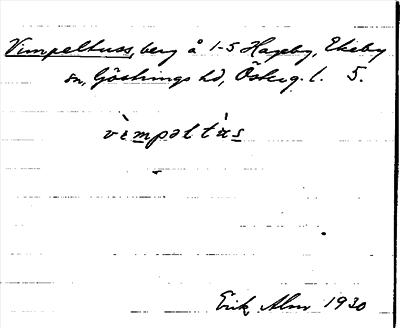 Vimpeltuss, berg å 1-5 Hageby, Ekeby
sn, Göstrings hd, Österg. l. 5.
vìmpəltùs
Erik Alm 1930